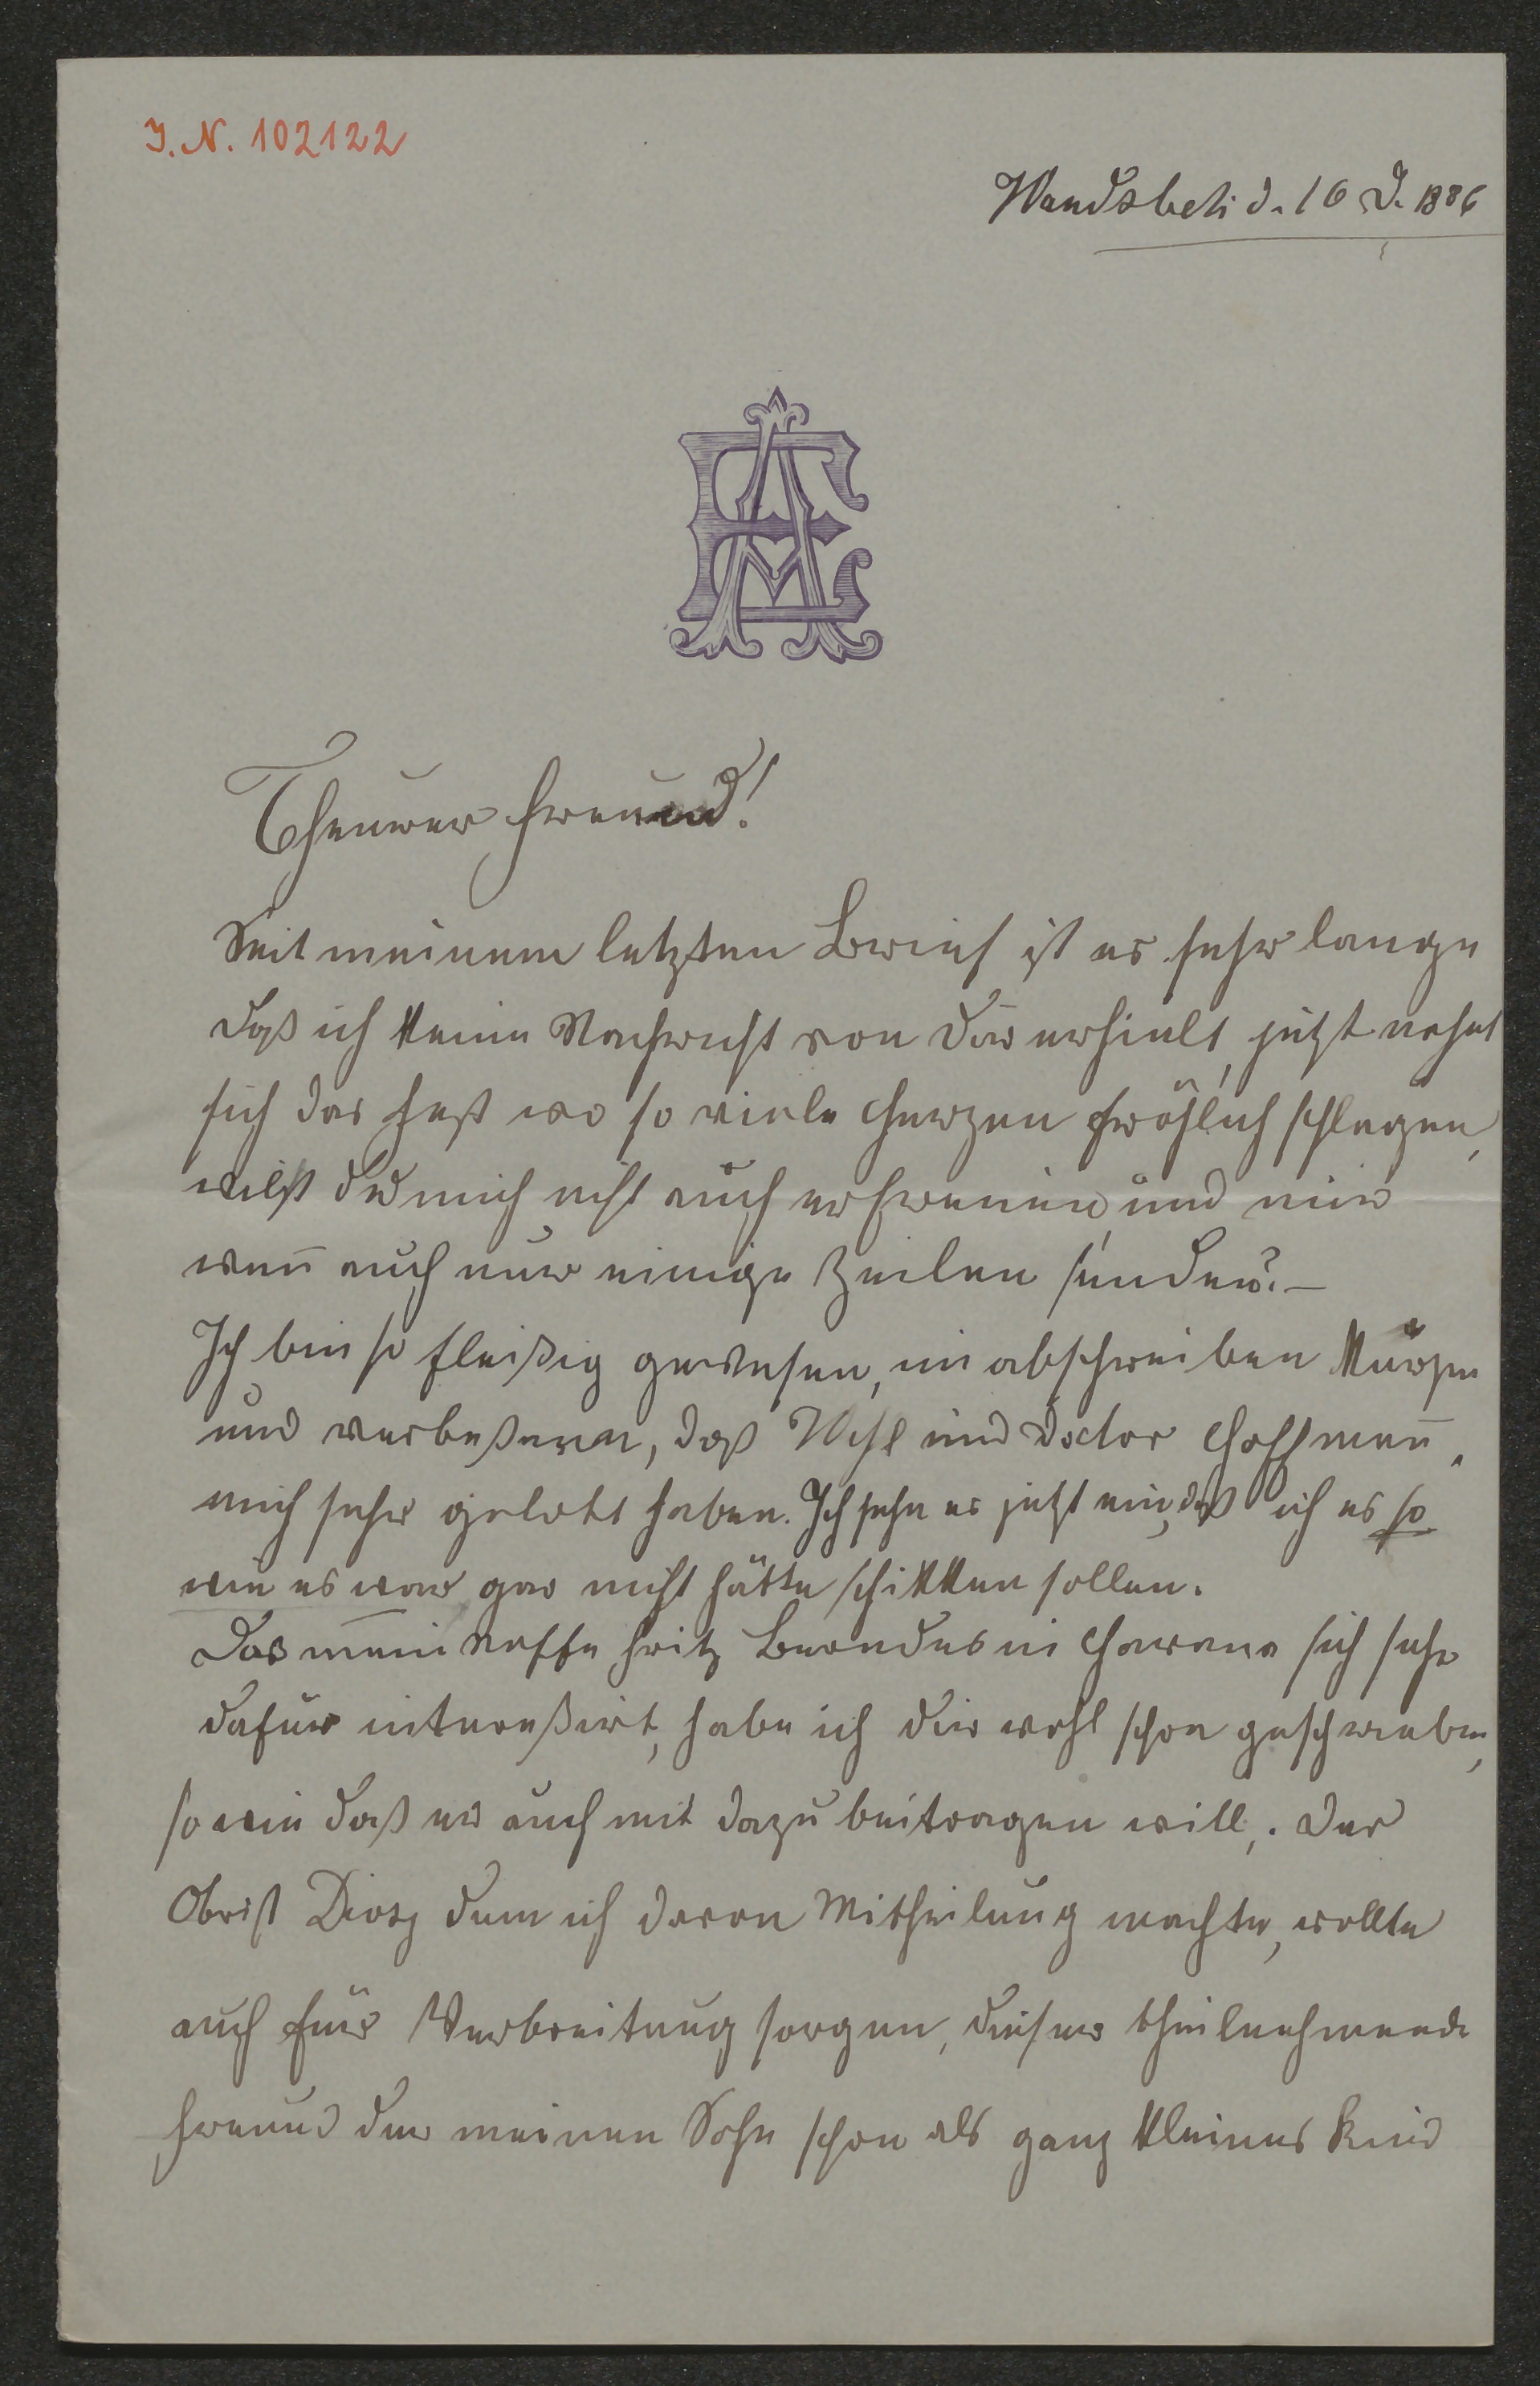 I. N. 102122
Wandsbek d. 16 D. 1886
EA
Theurer Freund!
Seit meinem letzten Brief ist es sehr lange
daß ich keine Nachricht von dir erhielt, jetzt nahet
sich das Fest wo so viele Herzen fröhlich schlagen,
willst du mich nicht auch erfreuen, und mir
wenn̄ auch nur einige Zeilen senden?—
Ich bin so fleißig gewesen, im abschreiben kürzen
und verbeßeren, daß Wehl und Doctor Hoffman̄
mich sehr gelobt haben. Ich sehe es jetzt ein, daß ich es so
wie es war gar nicht hätte schikken sollen.
Das mein Neffe Fritz Brondes in Havana sich sehr
dafür intereßirt, habe ich dir wohl schon geschrieben,
so wie daß er auch mit dazu beitragen will,. Der
Obrist Diosy dem ich davon Mittheilung machte, wollte
auch für Verbreitung sorgen, dieser theilnehmende
Freund der meinen Sohn schon als ganz kleines Kind